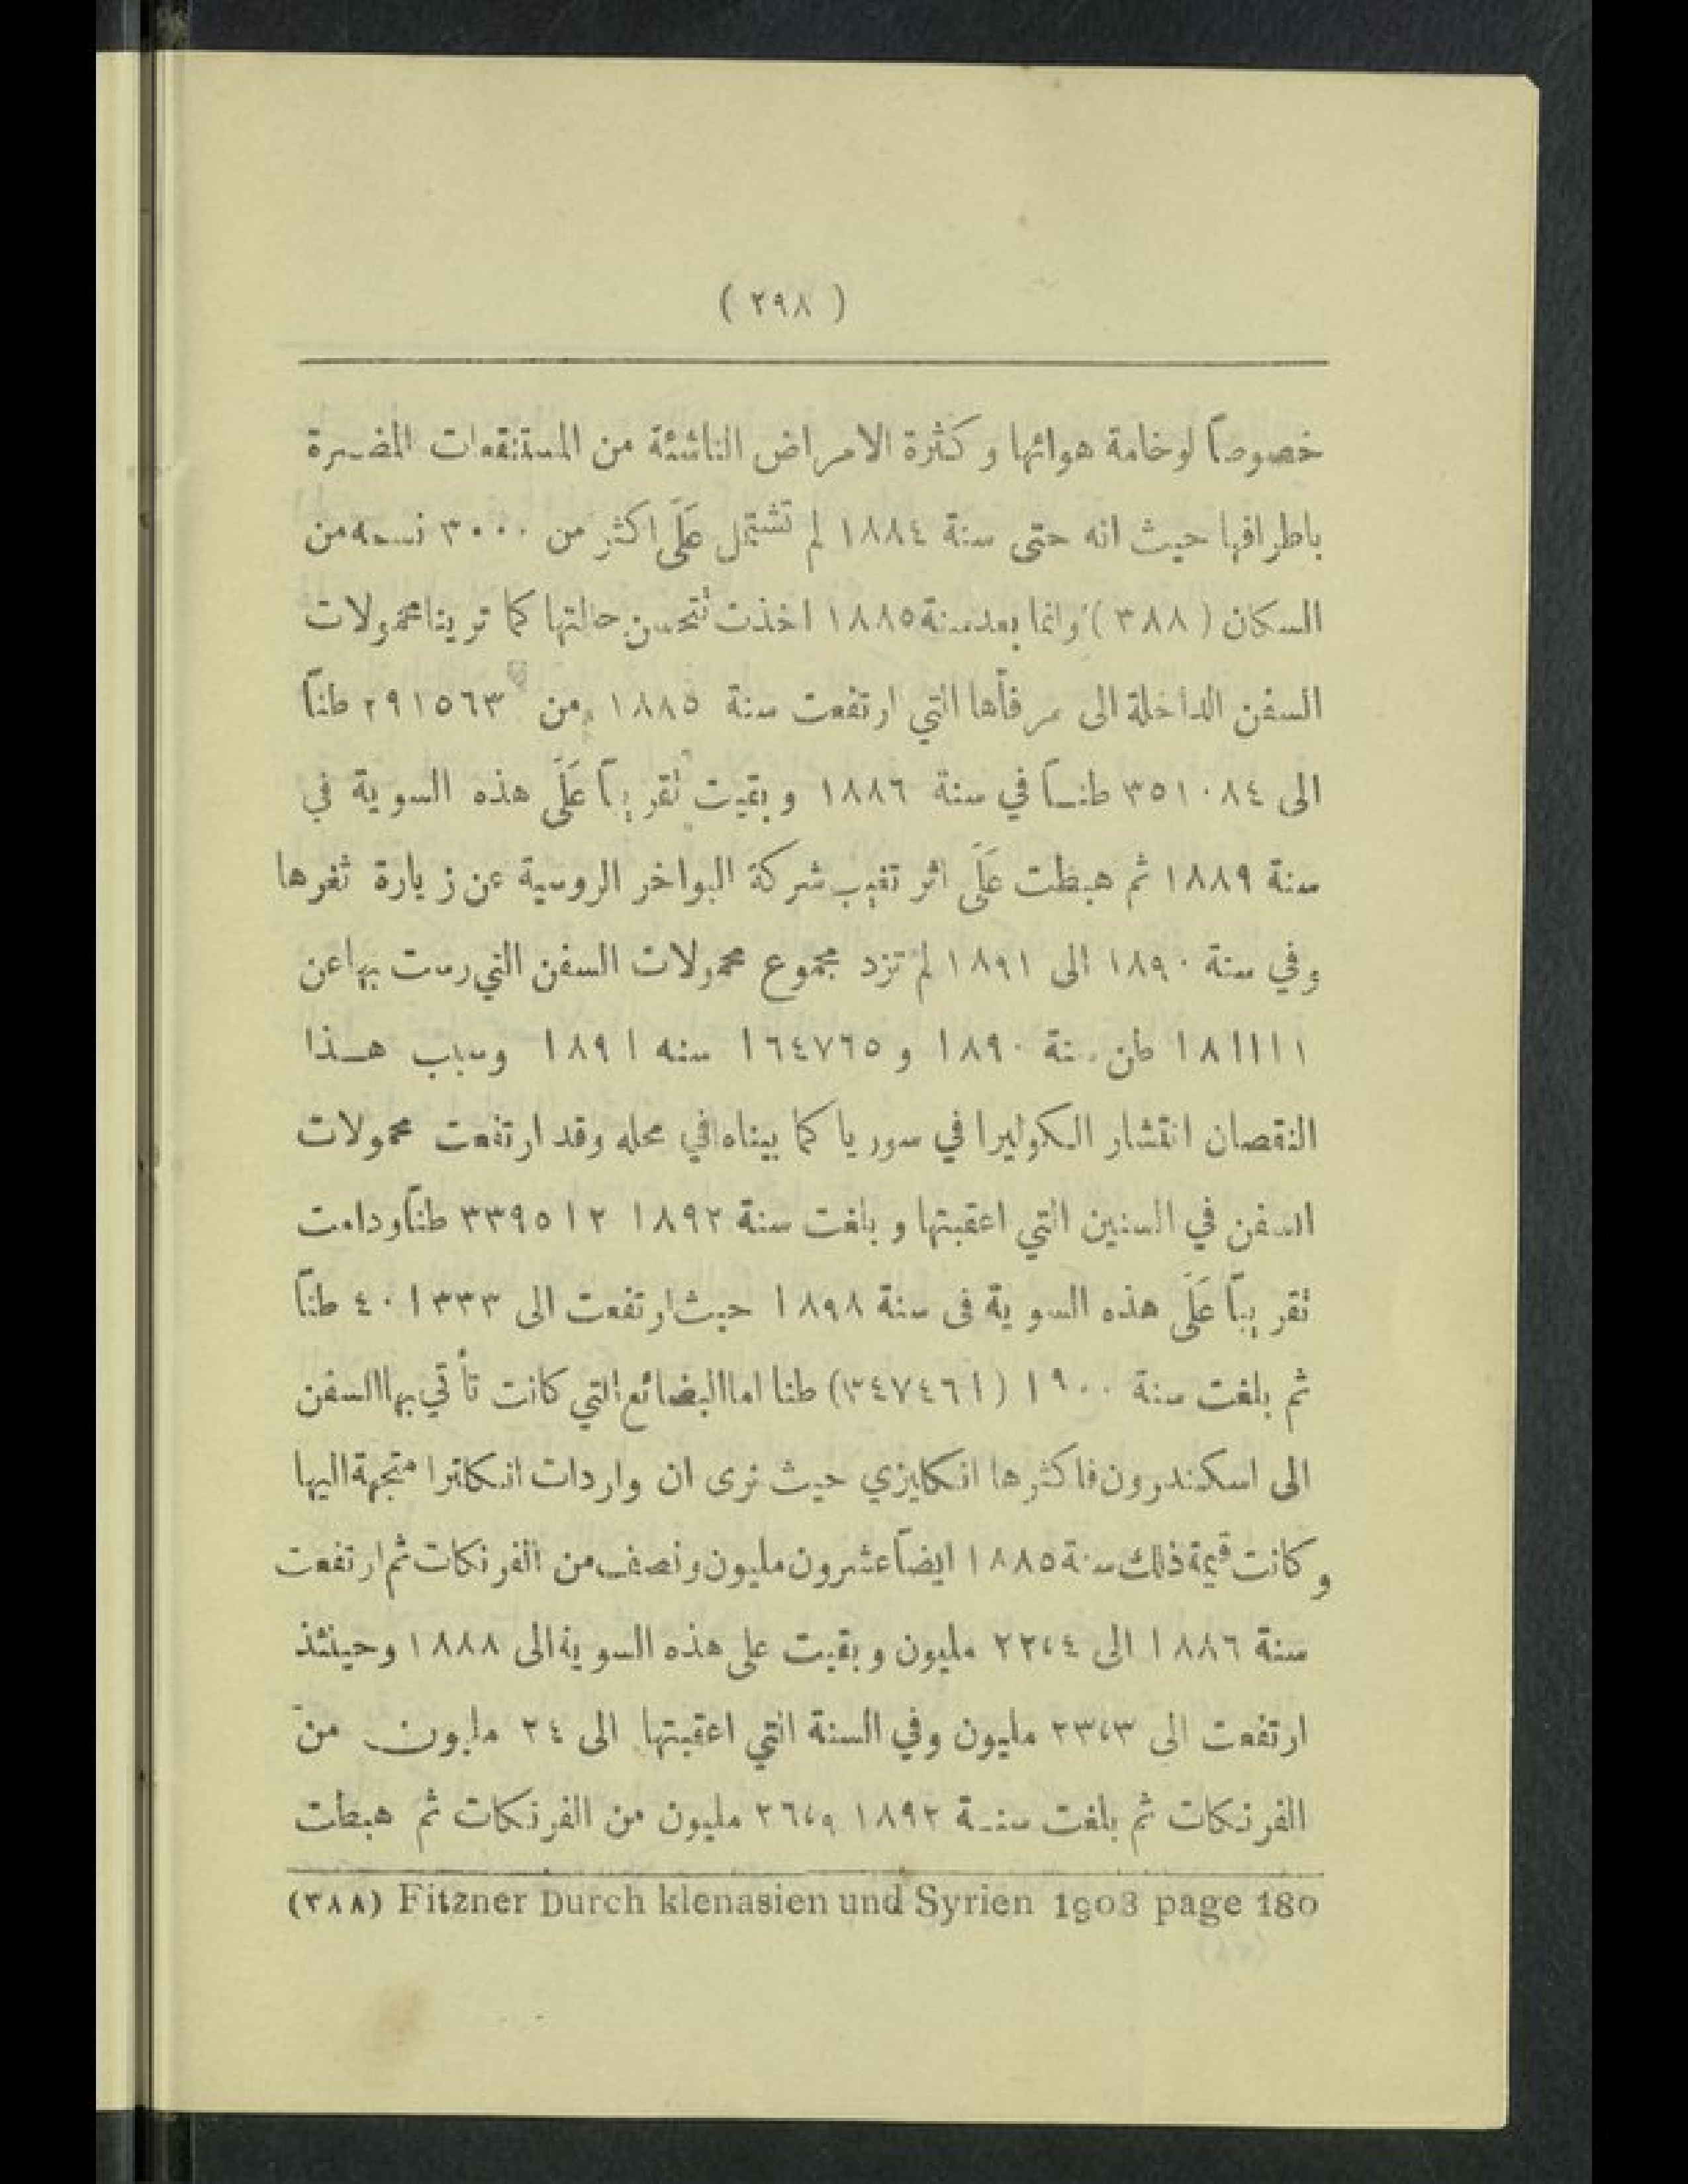 ( ٢٩٨ )
خصوصاً لوخامة هوائها و كثرة الامراض الناشئة من المستنقعات المضرة
باطرافها حيث انه حتى سنة ١٨٨٤ لم تشتمل عَلَى اكثر من ٣٠٠٠ نسمه من
السكان ( ٣٨٨ ) وانما بعد سنة ١٨٨٥ اخذت تتحسن حالتها كما ترينا محمولات
السفن الداخلة الى مرفأها التي ارتفعت سنة ١٨٨٥ من ٢٩١٥٦٣ طناً
الى ٣٥١٠٨٤ طنـاً في سنة ١٨٨٦ وبقيت تقريباً عَلَى هذه السوية في
سنة ١٨٨٩ ثم هبطت عَلَى اثر تغيب شركة البواخر الروسية عن زيارة ثغرها
وفي سنة ١٨٩٠ الى ١٨٩١ لم تزد مجموع محمولات السفن التي رست بها عن
١٨١١١١ طن سنة ١٨٩٠ و ١٦٤٧٦٥ سنه ١٨٩١ وسبب هـذا
النقصان انتشار الكوليرا في سوريا كما بيناه في محله وقد ارتفعت محمولات
السفن في السنين التي اعقبتها و بلغت سنة ١٨٩٢ ٣٣٩٥١٢ طناً ودامت
تقريباً عَلَى هذه السوية فى سنة ١٨٩٨ حيث ارتفعت الى ٤٠١٣٣٣ طناً
ثم بلغت سنة ١٩٠٠ (٣٤٧٤٦١) طنا اما البضائع التي كانت تأتي بها السفن
الى اسكندرون فاكثرها انكليزي حيث نرى ان واردات انكلترا متجهة اليها
وكانت قيمة ذلك سنة ١٨٨٥ ايضاً عشرون مليون ونصف من الفرنكات ثم ارتفعت
سنة ١٨٨٦ الى ٢٢،٤ مليون وبقيت على هذه السوية الى ١٨٨٨ وحينئذ
ارتفعت الى ٢٣،٣ مليون وفي السنة التي اعقبتها الى ٢٤ مليون من
الفرنكات ثم بلغت سنـة ١٨٩٢ ٢٦،٩ مليون من الفرنكات ثم هبطت
(٣٨٨) Fitzner Durch klenasien und Syrien 1903 page 180